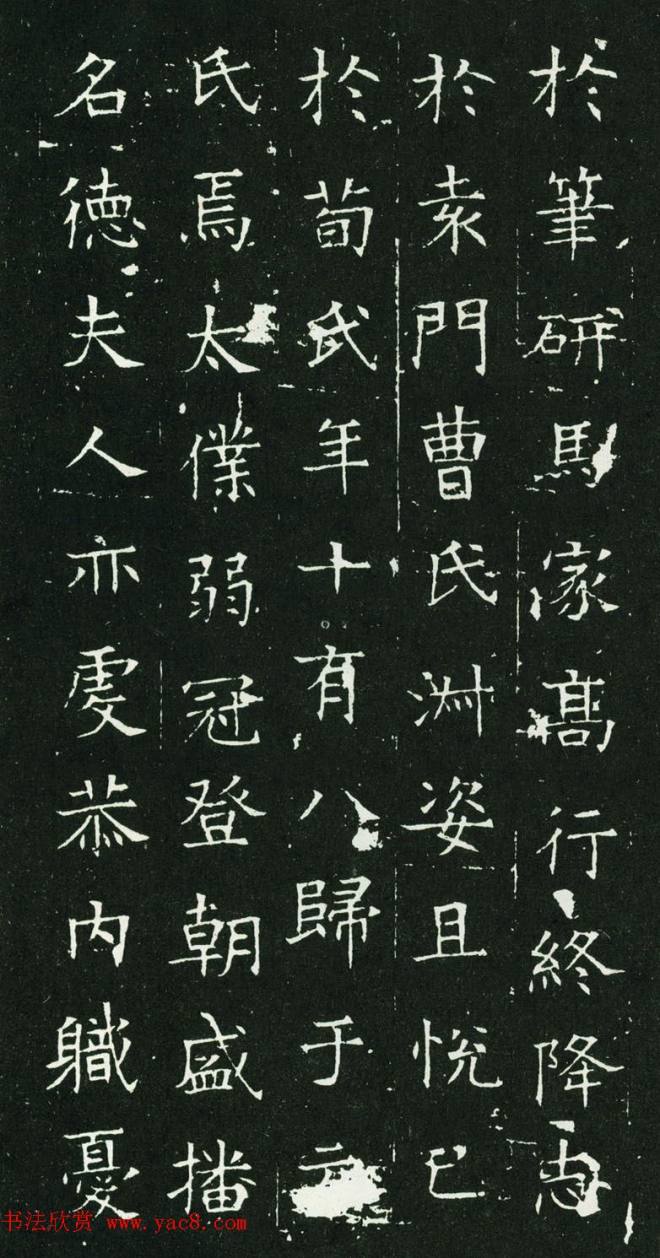 於筆研馬家髙行終降志
於袁門曹氏淑姿且悅己
於荀氏年十有八歸于元
氏焉太僕弱冠登朝盛播
名徳夫人亦虔恭内職憂
书法欣赏 www.yac8.com